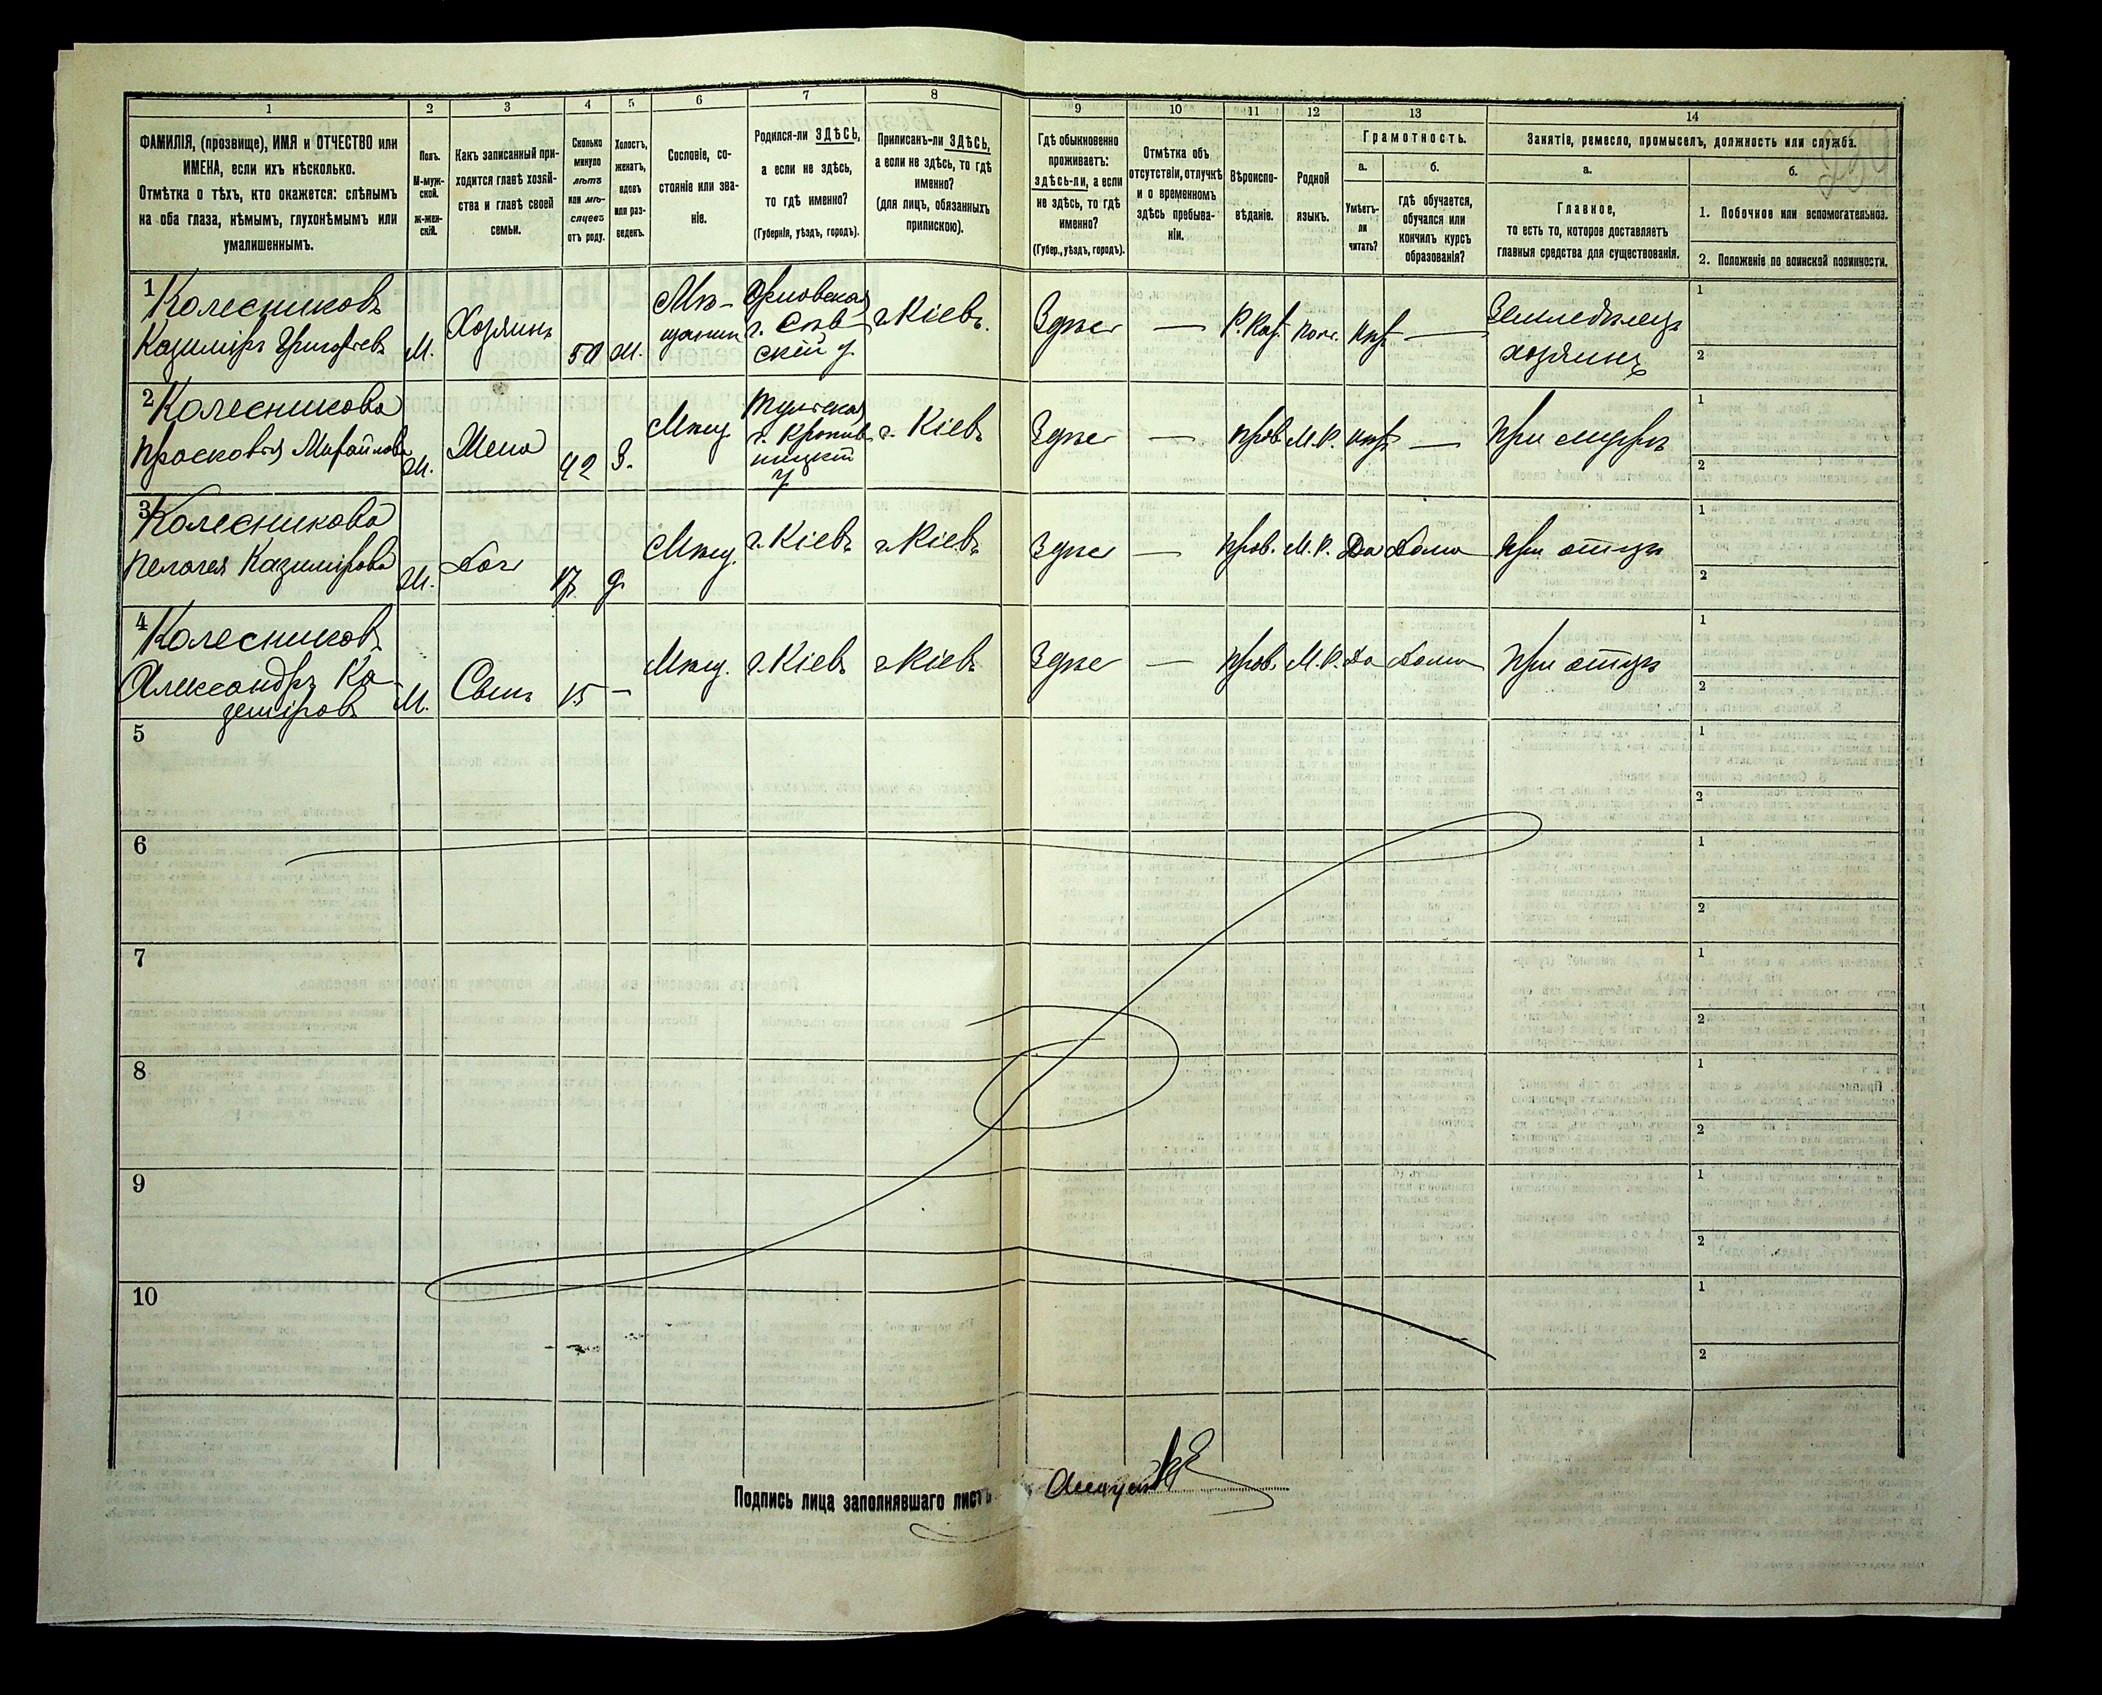 1 2 3 4 5 6 7 8 9 10 11 12 13 14
ФАМИЛІЯ, (прозвище), ИМЯ и ОТЧЕСТВО или
ИМЕНА, если ихъ нѣсколько.
Отмѣтка о тѣхъ, кто окажется: слѣпымъ
на оба глаза, нѣмымъ, глухонѣмымъ или
умалишеннымъ.
Полъ.
М-муж-
ской.
Ж-жен-
скій.
Какъ записанный при-
ходится главѣ хозяй-
ства и главѣ своей
семьи.
Сколько
минуло
лѣтъ
или мѣ-
сяцевъ
отъ роду.
Холостъ,
женатъ,
вдовъ
или раз-
веденъ.
Сословіе, со-
стояніе или зва-
ніе.
Родился-ли ЗДѢСЬ,
а если не здѣсь,
то гдѣ именно?
(Губернія, уѣздъ, городъ).
Приписанъ-ли ЗДѢСЬ,
а если не здѣсь, то гдѣ
именно?
(для лицъ, обязанныхъ
припискою).
Гдѣ обыкновенно
проживаетъ:
здѣсь-ли, а если
не здѣсь, то гдѣ
именно?
(Губер., уѣздъ, городъ).
Отмѣтка объ
отсутствіи, отлучкѣ
и о временномъ
здѣсь пребыва-
ніи.
Вѣроиспо-
вѣданіе.
Родной
языкъ.
Грамотность.
а.
Умѣетъ-
ли
читать?
б.
гдѣ обучается,
обучался или
кончилъ курсъ
образованія?
Занятіе, ремесло, промыселъ, должность или служба.
а.
Главное,
то есть то, которое доставляетъ
главныя средства для существованія.
б.
1. Побочное или вспомогательное.
2. Положеніе по воинской повинности.
1 Колесниковъ
Казиміръ Григорьевъ
М.
Хозяинъ
50
Мѣ-
щанин
Орловская
г.
г. Кіевъ.
Здѣсь — Р. Кат. пол. нѣтъ —
Земледѣлецъ
хозяинъ
1
2
2 Колесникова
Прасковья Михайлова
Жена
42 З.
Мѣщ.
Тульская
г. Крапив-
у
г. Кіевъ
Здѣсь — прав. М. Р. нѣтъ —
1
2
3 Колесникова
Пелагея Казимірова
Дочь
17
Мѣщ. г. Кіевъ г. Кіевъ
Здѣсь — прав. М. Р. Да Дома При отцѣ
1
2
4 Колесниковъ
Александръ Ка-
земіровъ
М. Сынъ 15 —
Мѣщ. г. Кіевъ г. Кіевъ
Здѣсь — прав. М. Р. Да Дома При отцѣ
1
2
5
1
2
6
1
2
7
1
2
8
1
2
9
1
2
10
1
2
Подпись лица заполнявшаго листъ